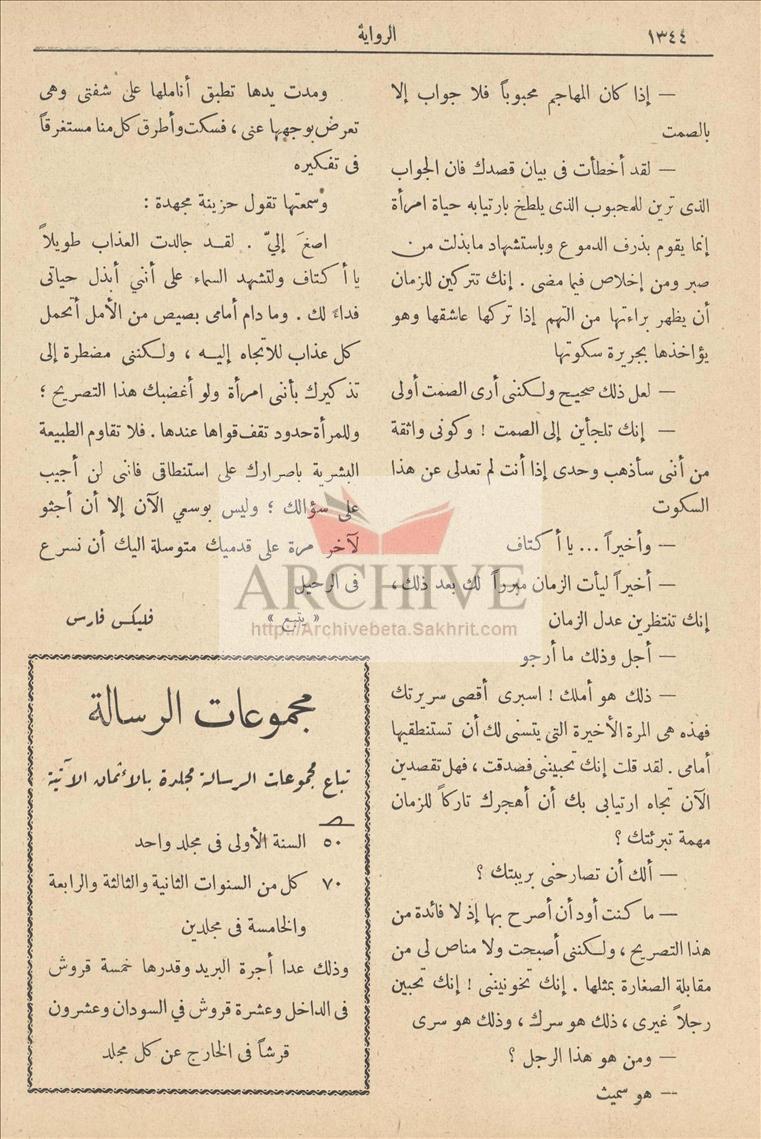 ١٣٤٤
الرواية
— إذا كان المهاجم محبوباً فلا جواب إلا
بالصمت
— لقد أخطأت فى بيان قصدك فان الجواب
الذى ترين للمحبوب الذى يلطخ بارتيابه حياة امرأة
إنما يقوم بذرف الدموع وباستشهاد ما بذلت من
صبر ومن إخلاص فيما مضى . إنك تتركين للزمان
أن يظهر براءتها من التهم إذا تركها عاشقها وهو
يؤاخذها بجريرة سكوتها
— لعل ذلك صحيح ولكننى أرى الصمت أولى
— إنك تلجأين إلى الصمت ! وكونى واثقة
من أننى سأذهب وحدى إذا أنت لم تعدلى عن هذا
السكوت
— وأخيراً ... يا أكتاف
— أخيراً ليأت الزمان مبرراً لك بعد ذلك ،
إنك تنتظرين عدل الزمان
— أجل وذلك ما أرجو
— ذلك هو أملك ! اسبرى أقصى سريرتك
فهذه هى المرة الأخيرة التى يتسنى لك أن تستنطقيها
أمامى . لقد قلت إنك تحبيننى فصدقت ، فهل تقصدين
الآن تجاه ارتيابى بك أن أهجرك تاركاً للزمان
مهمة تبرئتك ؟
— ألك أن تصارحنى بريبتك ؟
— ما كنت أود أن أصرح بها إذ لا فائدة من
هذا التصريح ، ولكننى أصبحت ولا مناص لى من
مقابلة الصغارة بمثلها . إنك تخونيننى ! إنك تحبين
رجلاً غيرى ، ذلك هو سرك ، وذلك هو سرى
— ومن هو هذا الرجل ؟
— هو سميث
ومدت يدها تطبق أناملها على شفتى وهى
تعرض بوجهها عنى ، فسكت وأطرق كل منا مستغرقاً
فى تفكيره
وسمعتها تقول حزينة مجهدة :
اصغَ إليّ . لقد جالدت العذاب طويلاً
يا أكتاف ولتشهد السماء على أننى أبذل حياتى
فداءً لك . وما دام أمامى بصيص من الأمل أتحمل
كل عذاب للاتجاه إليه ، ولكننى مضطرة إلى
تذكيرك بأننى امرأة ولو أغضبك هذا التصريح ؛
وللمرأة حدود تقف قواها عندها . فلا تقاوم الطبيعة
البشرية باصرارك على استنطاقى فاننى لن أجيب
على سؤالك ؛ وليس بوسعي الآن إلا أن أجثو
لآخر مرة على قدميك متوسلة اليك أن نسرع
فى الرحيل
« يتبع » فليكس فارس
مجموعات الرسالة
تباع مجموعات الرسالة مجلدة بالأثمان الآتية
٥٠ السنة الأولى فى مجلد واحد
٧٠ كل من السنوات الثانية والثالثة والرابعة
والخامسة فى مجلدين
وذلك عدا أجرة البريد وقدرها خمسة قروش
فى الداخل وعشرة قروش في السودان وعشرون
قرشاً فى الخارج عن كل مجلد
ARCHIVE
http://Archivebeta.Sakhrit.com